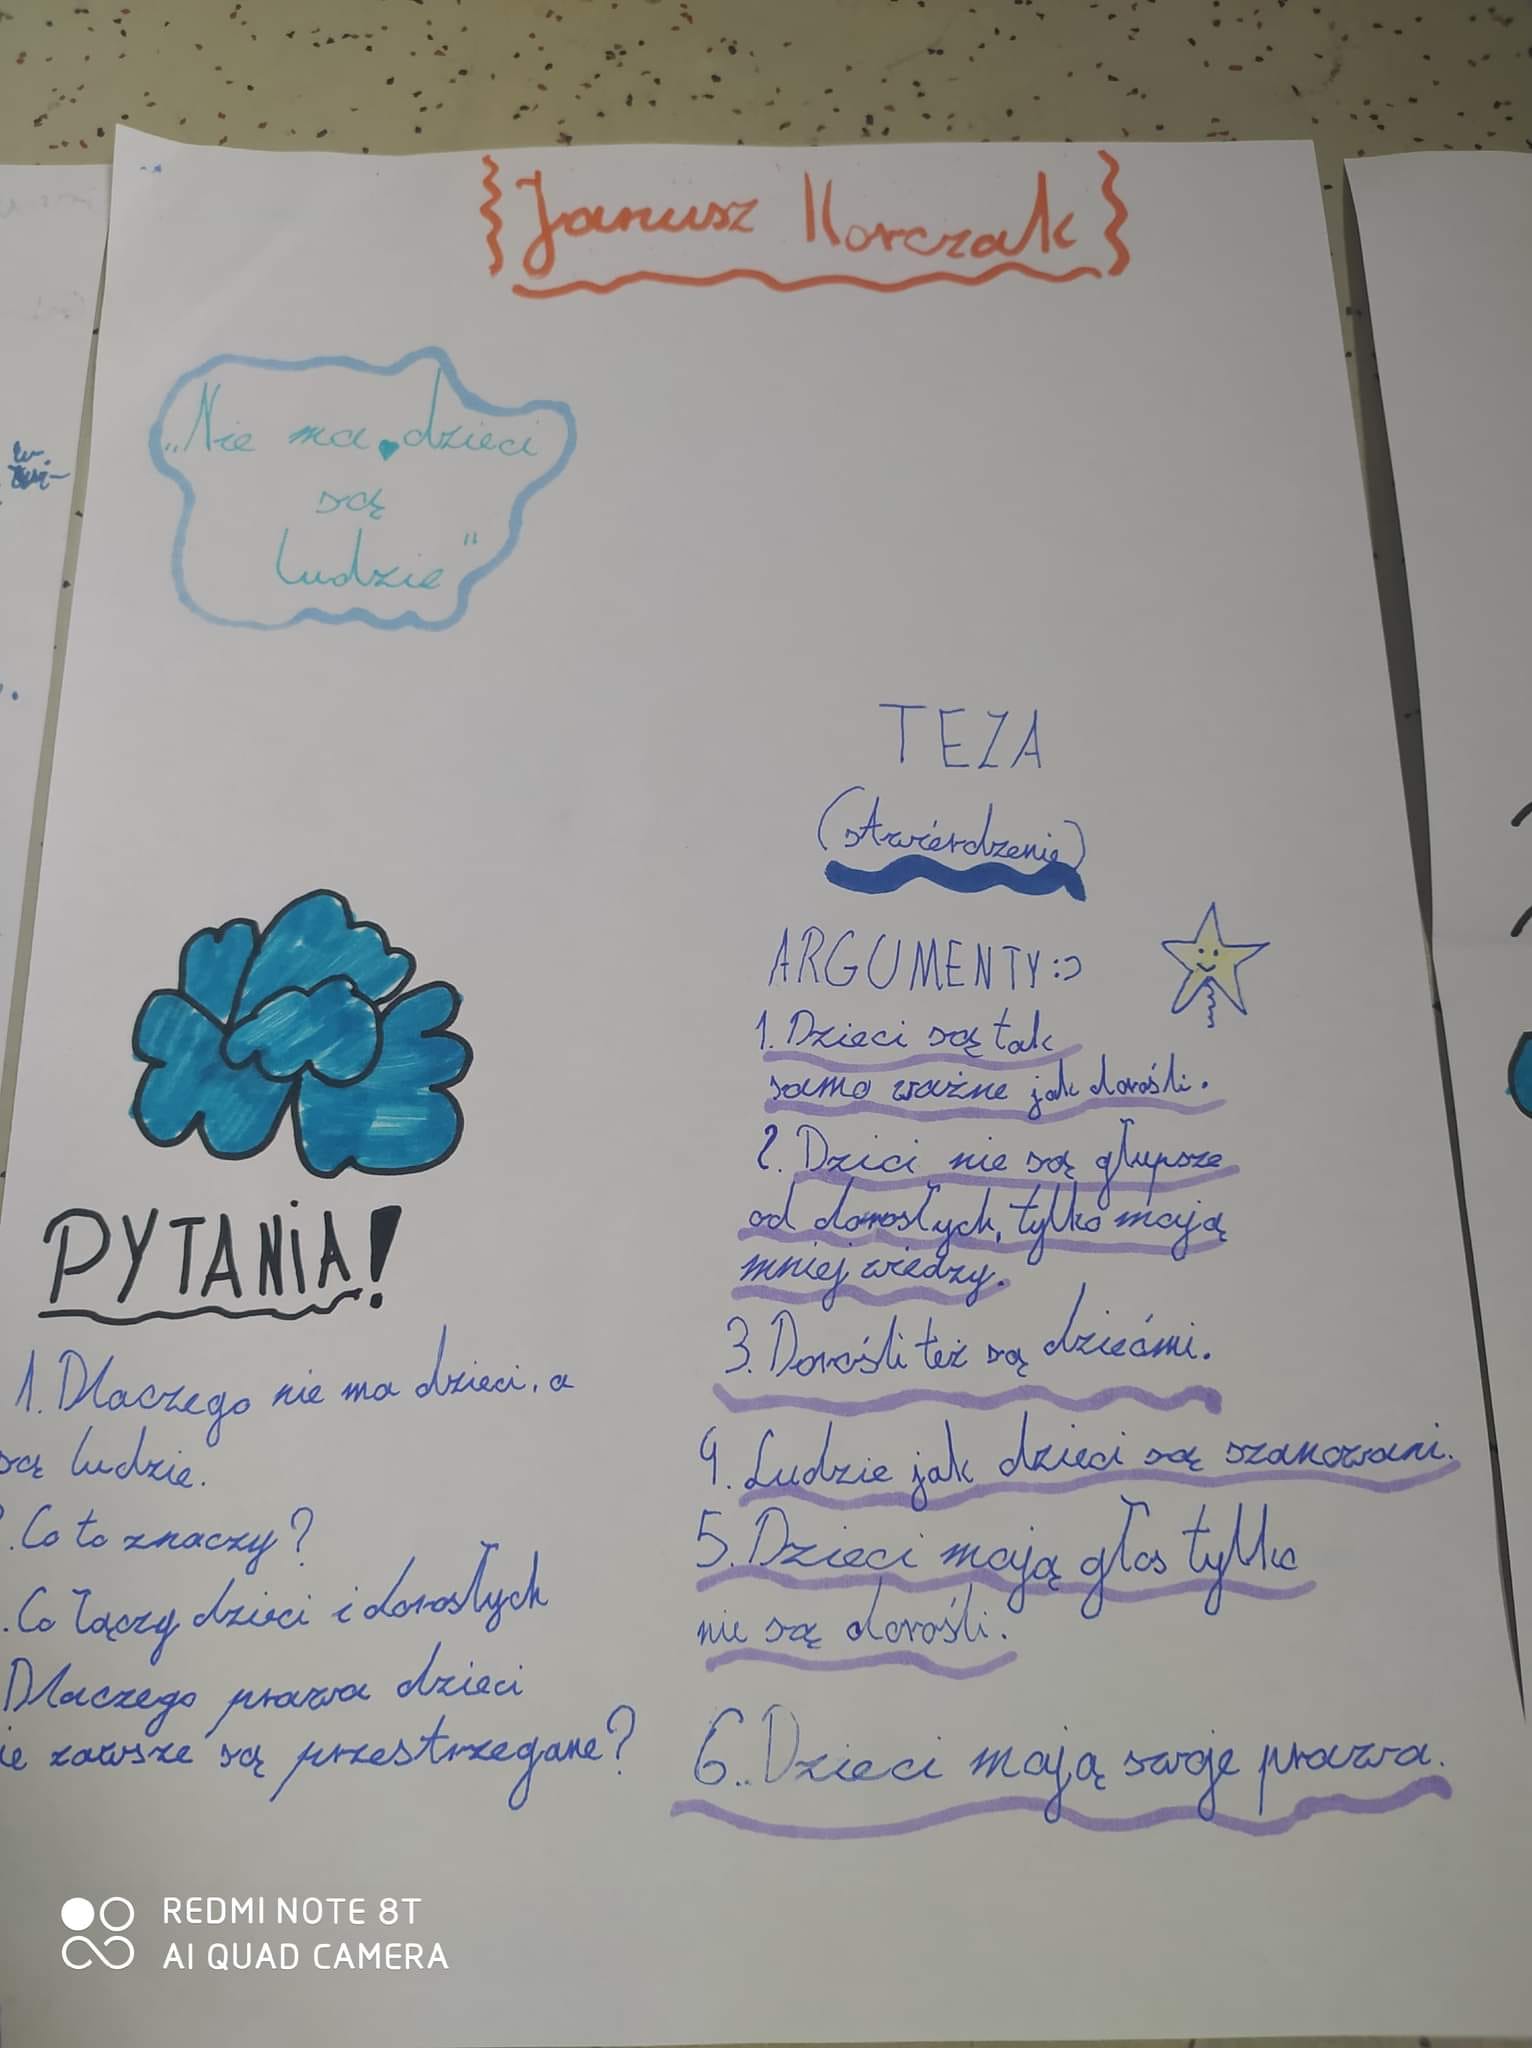 Janusz Korczak
„Nie ma dzieci
są
ludzie"
TEZA
(stwierdzenie)
ARGUMENTY:)
1. Dzieci są tak
samo ważne jak dorośli.
2. Dzici nie są głupsze
od dorosłych, tylko mają
mniej wiedzy.
3. Dorośli też są dziećmi.
4. Ludzie jak dzieci są szanowani.
5. Dzieci mają głos tylko
nie są dorośli.
6. Dzieci mają swoje prawa.
PYTANiA!
1. Dlaczego nie ma dzieci, a
są ludzie.
. Co to znaczy?
. Co łączy dzieci i dorosłych
Dlaczego prawa dzieci
ie zawsze są przestrzegane?
REDMI NOTE 8T
AI QUAD CAMERA